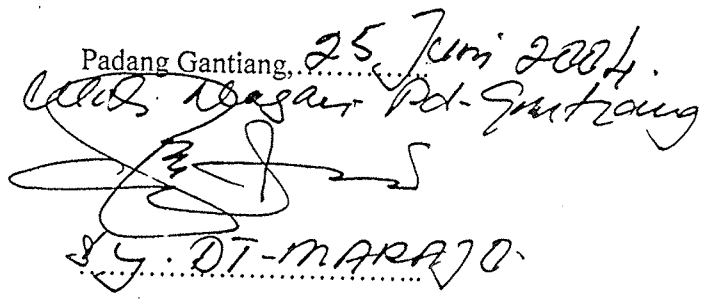 Padang Gantiang, 25 Juni 2004.
Wali Nagari Pd-Gantiang
Sy. DT-MARAJO.